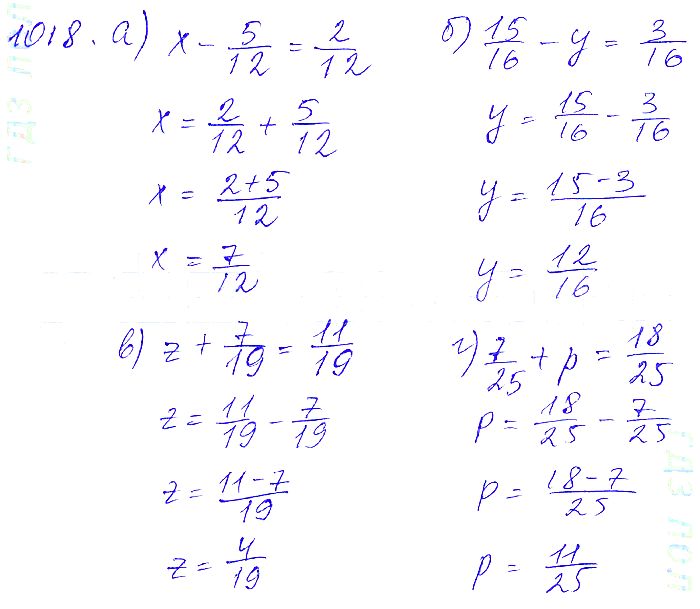 1018. а) x - 5/12 = 2/12
x = 2/12 + 5/12
x = (2+5)/12
x = 7/12
б) 15/16 - y = 3/16
y = 15/16 - 3/16
y = (15-3)/16
y = 12/16
в) z + 7/19 = 11/19
z = 11/19 - 7/19
z = (11-7)/19
z = 4/19
г) 7/25 + p = 18/25
p = 18/25 - 7/25
p = (18-7)/25
p = 11/25